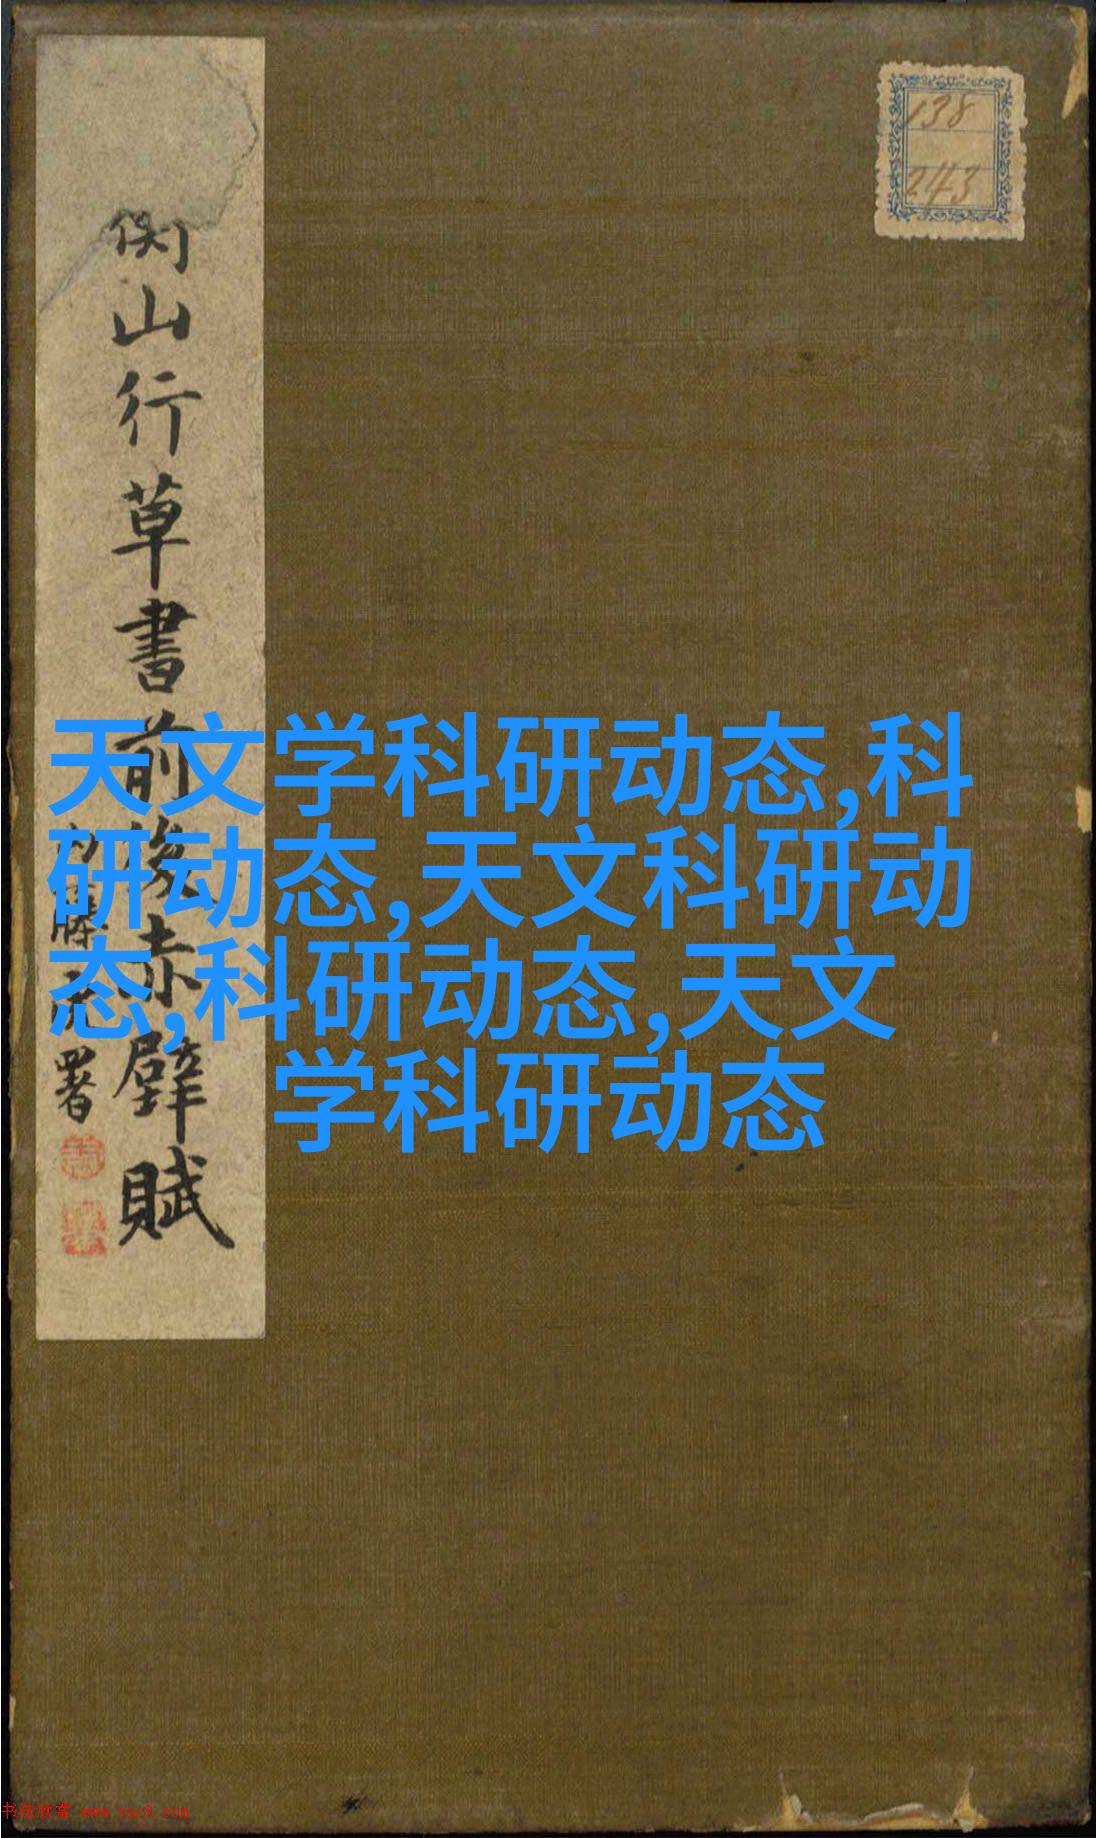 衡山行草書前後赤壁賦
内藤虎署
138
243
天文学科研动态,科
研动态,天文科研动
态,科研动态,天文
学科研动态
书法欣赏 www.yac8.com